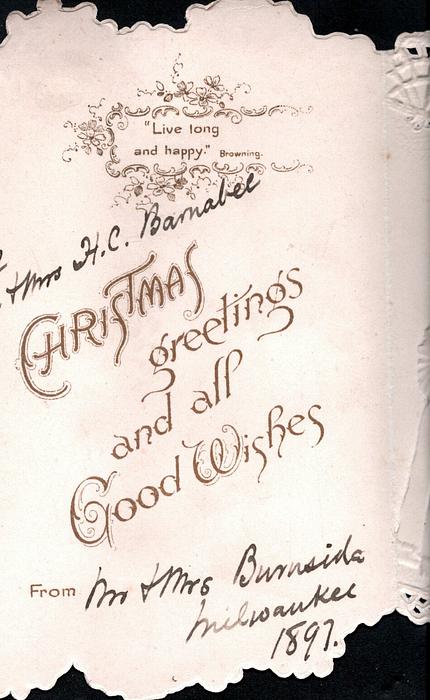 "Live long
and happy." Browning.
& Mrs H.C. Barnabel
CHRISTMAS
greetings
and all
Good Wishes
From Mr & Mrs Burnside
Milwaukee
1897.